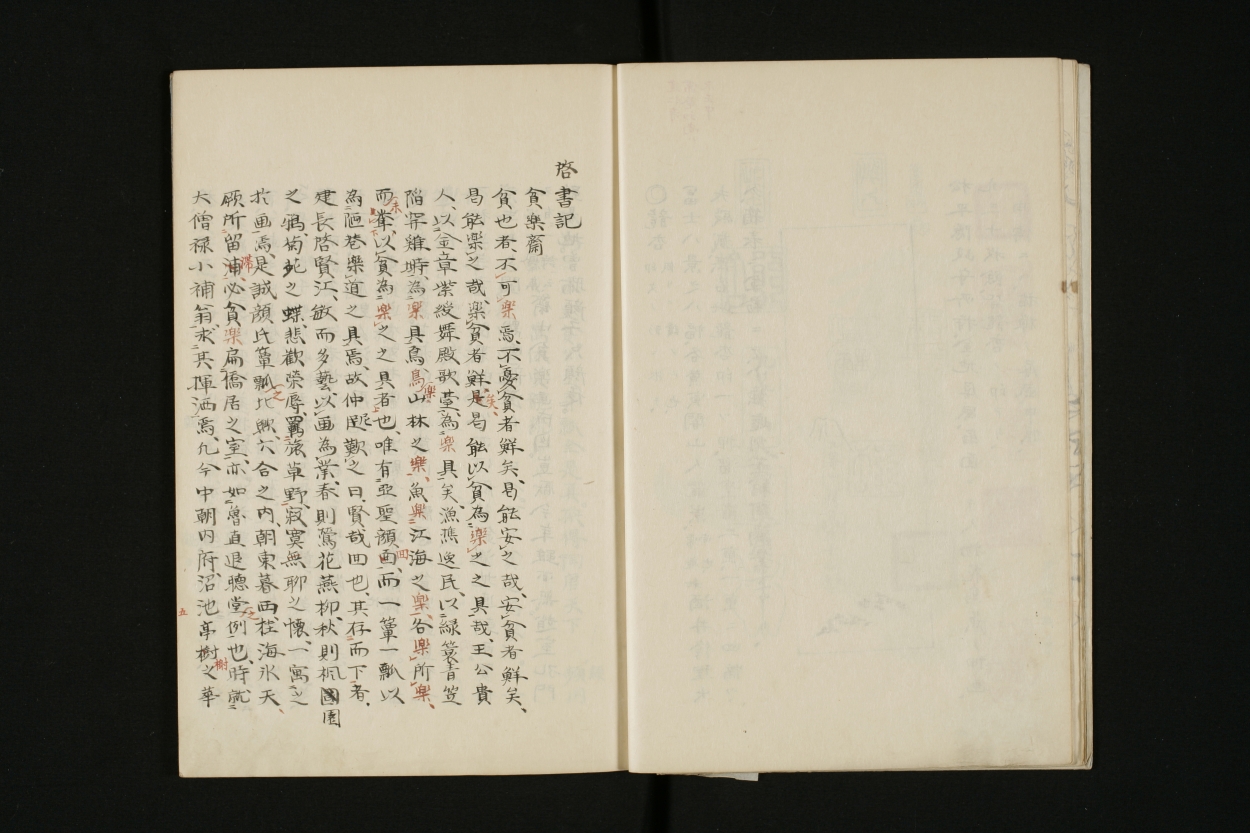 啓書記
貧樂齋
貧也者、不可楽焉、不憂貧者鮮矣、曷能安之哉、安貧者鮮矣、
曷能楽之哉、楽貧者鮮矣、是曷能以貧為楽之之具哉、王公貴
人、以金章紫綬舞殿歌臺、為楽具矣、漁樵逸民、以緑簑青笠
陷穽雞塒、為楽具焉、鳥楽山林之楽、魚楽江海之楽、各楽所楽、
而未、以貧為楽之之具者也、唯有亞聖顔回、而一簞一瓢以
為陋巷楽道之具焉、故仲尼歎之曰、賢哉回也、其存而下者、
建長啓賢江、敏而多藝、以画為業、春則鶯花燕柳、秋則楓園
之鴉、菊苑之蝶、悲歡榮辱、羈旅草野、寂寞無聊之懷、一寓之
於画焉、是誠顔氏簞瓢之比興、六合之内、朝東暮西、桂海氷天、
所留滞、必貧楽扁僑居之室、亦如魯直退聴堂之例也、時
大僧禄小補翁、求其揮洒焉、凡今中朝内府、沼池亭樹之華
五